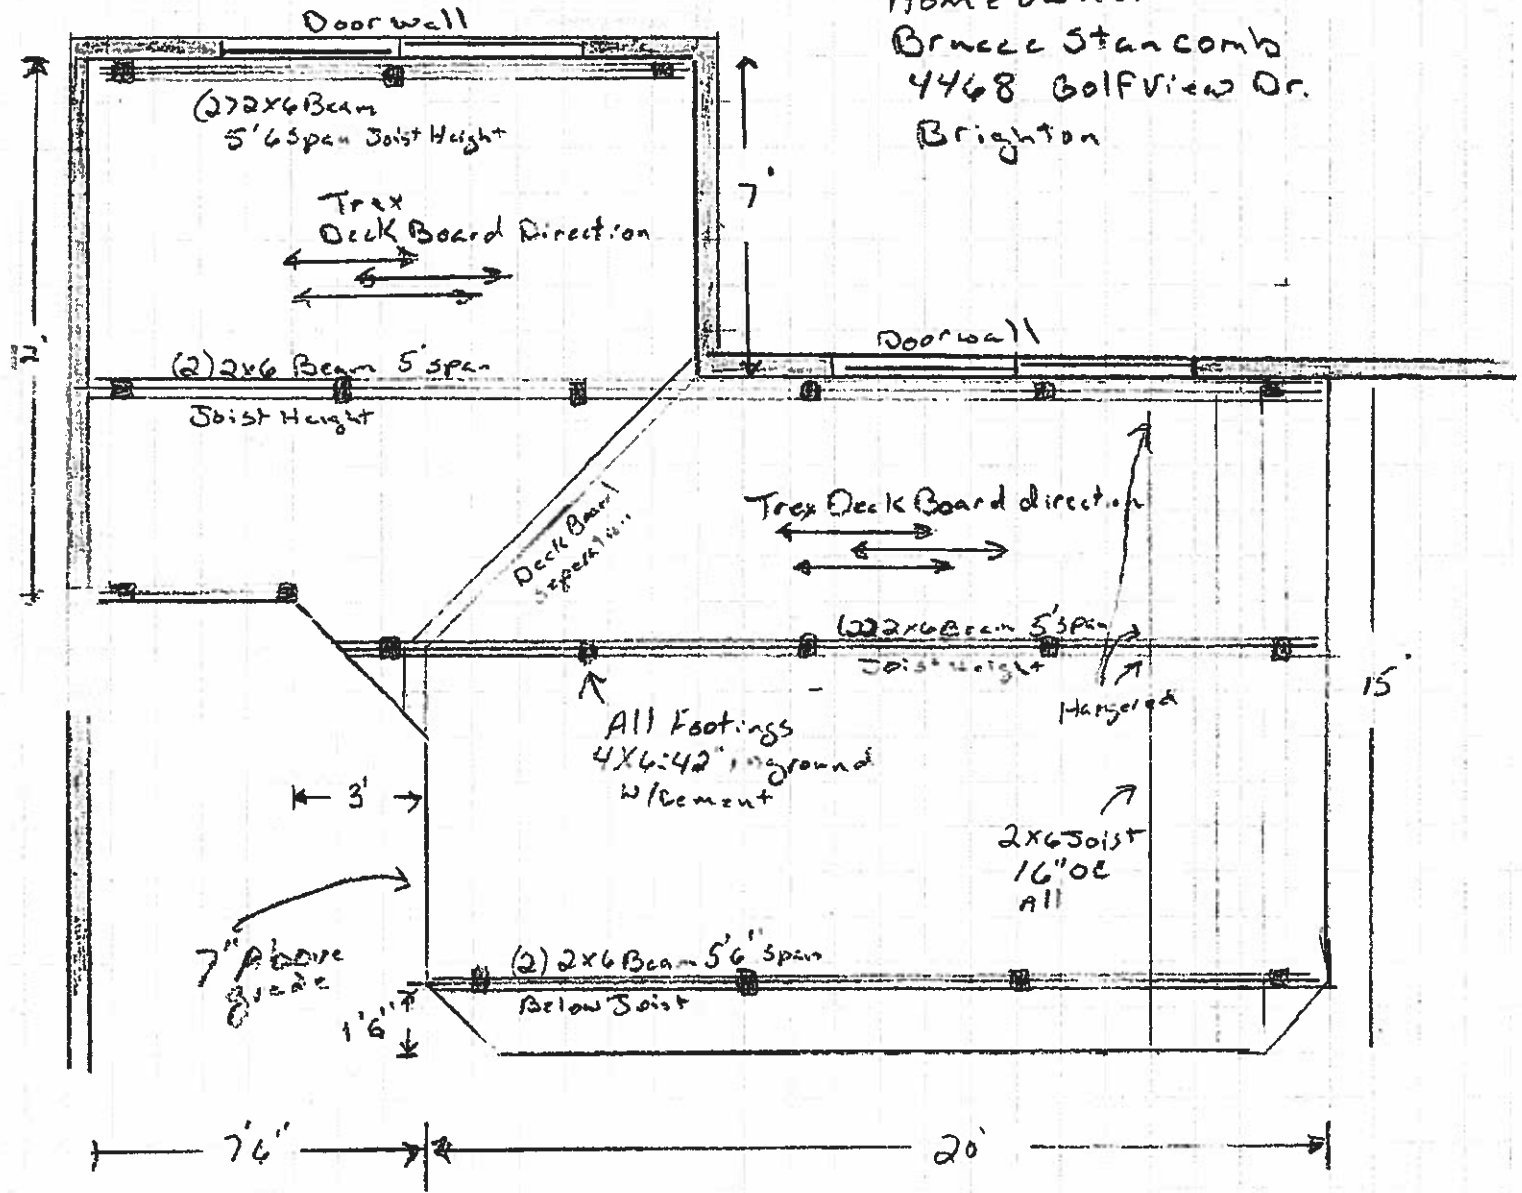 Doorwall
Brucee Stancomb
4468 GolfView Dr.
Brighton
(2) 2x6 Beam
5'6 Span Joist Height
7'
Trex
Deck Board Direction
12'
Doorwall
(2) 2x6 Beam 5' span
Joist Height
Trex Deck Board direction
Deck Board
Seperation
(2) 2x6 Beam 5' Span
Joist Height
15'
Hangered
All Footings
4X6:42" inground
W/Cement
3'
2x6 Joist
16" OC
All
7" Above
grade
(2) 2x6 Beam 5'6" Span
Below Joist
1'6"
7'6"
20'